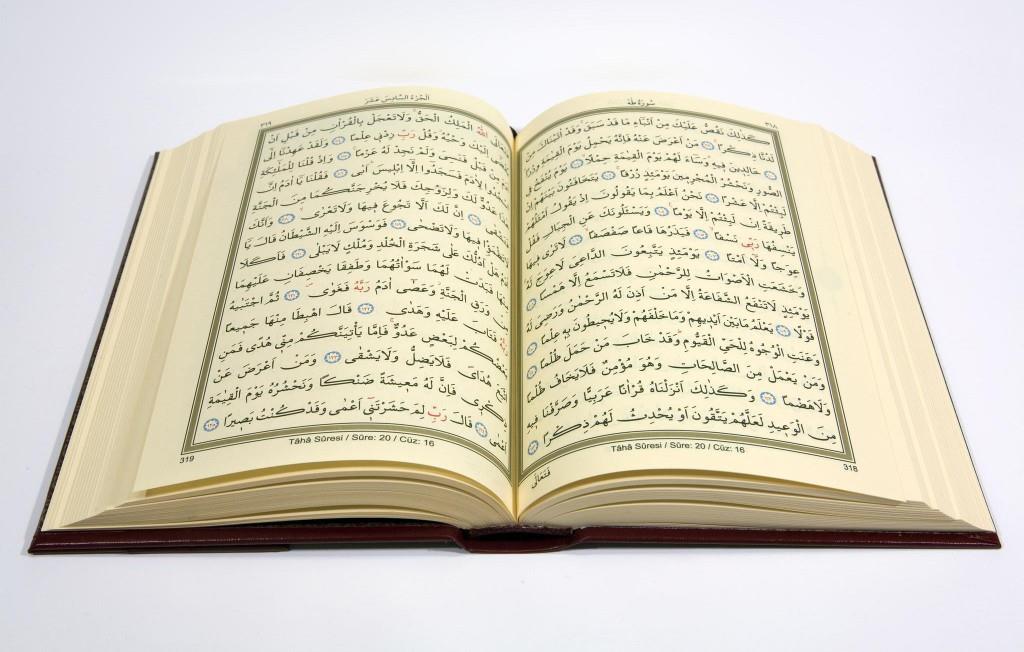 سُورَةُ طٰهٰ
٣١٨
كَذٰلِكَ نَقُصُّ عَلَيْكَ مِنْ اَنْبَاءِ مَا قَدْ سَبَقَ وَقَدْ اٰتَيْنَاكَ مِنْ
لَدُنَّا ذِكْرًا ﴿٩٩﴾ مَنْ اَعْرَضَ عَنْهُ فَاِنَّهُ يَحْمِلُ يَوْمَ الْقِيٰمَةِ وِزْرًا
﴿١٠٠﴾ خَالِدِينَ فِيهِ وَسَاءَ لَهُمْ يَوْمَ الْقِيٰمَةِ حِمْلًا ﴿١٠١﴾ يَوْمَ يُنْفَخُ فِي
الصُّورِ وَنَحْشُرُ الْمُجْرِمِينَ يَوْمَئِذٍ زُرْقًا ﴿١٠٢﴾ يَتَخَافَتُونَ بَيْنَهُمْ اِنْ
لَبِثْتُمْ اِلَّا عَشْرًا ﴿١٠٣﴾ نَحْنُ اَعْلَمُ بِمَا يَقُولُونَ اِذْ يَقُولُ اَمْثَلُهُمْ
طَرِيقَةً اِنْ لَبِثْتُمْ اِلَّا يَوْمًا ﴿١٠٤﴾ وَيَسْئَلُونَكَ عَنِ الْجِبَالِ فَقُلْ
يَنْسِفُهَا رَبِّي نَسْفًا ﴿١٠٥﴾ فَيَذَرُهَا قَاعًا صَفْصَفًا ﴿١٠٦﴾ لَا تَرٰى فِيهَا
عِوَجًا وَلَا اَمْتًا ﴿١٠٧﴾ يَوْمَئِذٍ يَتَّبِعُونَ الدَّاعِيَ لَا عِوَجَ لَهُ
وَخَشَعَتِ الْاَصْوَاتُ لِلرَّحْمٰنِ فَلَا تَسْمَعُ اِلَّا هَمْسًا ﴿١٠٨﴾
يَوْمَئِذٍ لَا تَنْفَعُ الشَّفَاعَةُ اِلَّا مَنْ اَذِنَ لَهُ الرَّحْمٰنُ وَرَضِيَ لَهُ
قَوْلًا ﴿١٠٩﴾ يَعْلَمُ مَا بَيْنَ اَيْدِيهِمْ وَمَا خَلْفَهُمْ وَلَا يُحِيطُونَ بِهِ عِلْمًا ﴿١١٠﴾
وَعَنَتِ الْوُجُوهُ لِلْحَيِّ الْقَيُّومِ وَقَدْ خَابَ مَنْ حَمَلَ ظُلْمًا ﴿١١١﴾
وَمَنْ يَعْمَلْ مِنَ الصَّالِحَاتِ وَهُوَ مُؤْمِنٌ فَلَا يَخَافُ ظُلْمًا
وَلَا هَضْمًا ﴿١١٢﴾ وَكَذٰلِكَ اَنْزَلْنَاهُ قُرْاٰنًا عَرَبِيًّا وَصَرَّفْنَا فِيهِ
مِنَ الْوَعِيدِ لَعَلَّهُمْ يَتَّقُونَ اَوْ يُحْدِثُ لَهُمْ ذِكْرًا ﴿١١٣﴾
Tâhâ Sûresi / Sûre: 20 / Cüz: 16
318
فَتَعَالَى
اَلْجُزْءُ السَّادِسَ عَشَرَ
٣١٩
اللّٰهُ الْمَلِكُ الْحَقُّ وَلَا تَعْجَلْ بِالْقُرْاٰنِ مِنْ قَبْلِ اَنْ
اِلَيْكَ وَحْيُهُ وَقُلْ رَبِّ زِدْنِي عِلْمًا ﴿١١٤﴾ وَلَقَدْ عَهِدْنَا اِلٰى
مِنْ قَبْلُ فَنَسِيَ وَلَمْ نَجِدْ لَهُ عَزْمًا ﴿١١٥﴾ وَاِذْ قُلْنَا لِلْمَلٰئِكَةِ
لِاٰدَمَ فَسَجَدُوا اِلَّا اِبْلِيسَ اَبٰى ﴿١١٦﴾ فَقُلْنَا يَا اٰدَمُ اِنَّ
عَدُوٌّ لَكَ وَلِزَوْجِكَ فَلَا يُخْرِجَنَّكُمَا مِنَ الْجَنَّةِ
﴿١١٧﴾ اِنَّ لَكَ اَلَّا تَجُوعَ فِيهَا وَلَا تَعْرٰى ﴿١١٨﴾ وَاَنَّكَ
فِيهَا وَلَا تَضْحٰى ﴿١١٩﴾ فَوَسْوَسَ اِلَيْهِ الشَّيْطَانُ قَالَ يَا
هَلْ اَدُلُّكَ عَلٰى شَجَرَةِ الْخُلْدِ وَمُلْكٍ لَا يَبْلٰى ﴿١٢٠﴾ فَاَكَلَا
فَبَدَتْ لَهُمَا سَوْاٰتُهُمَا وَطَفِقَا يَخْصِفَانِ عَلَيْهِمَا
وَرَقِ الْجَنَّةِ وَعَصٰى اٰدَمُ رَبَّهُ فَغَوٰى ﴿١٢١﴾ ثُمَّ اجْتَبٰيهُ
فَتَابَ عَلَيْهِ وَهَدٰى ﴿١٢٢﴾ قَالَ اهْبِطَا مِنْهَا جَمِيعًا
لِبَعْضٍ عَدُوٌّ فَاِمَّا يَأْتِيَنَّكُمْ مِنِّي هُدًى فَمَنِ
هُدَايَ فَلَا يَضِلُّ وَلَا يَشْقٰى ﴿١٢٣﴾ وَمَنْ اَعْرَضَ عَنْ
فَاِنَّ لَهُ مَعِيشَةً ضَنْكًا وَنَحْشُرُهُ يَوْمَ الْقِيٰمَةِ
اَعْمٰى ﴿١٢٤﴾ قَالَ رَبِّ لِمَ حَشَرْتَنِي اَعْمٰى وَقَدْ كُنْتُ بَصِيرًا ﴿١٢٥﴾
Tâhâ Sûresi / Sûre: 20 / Cüz: 16
319